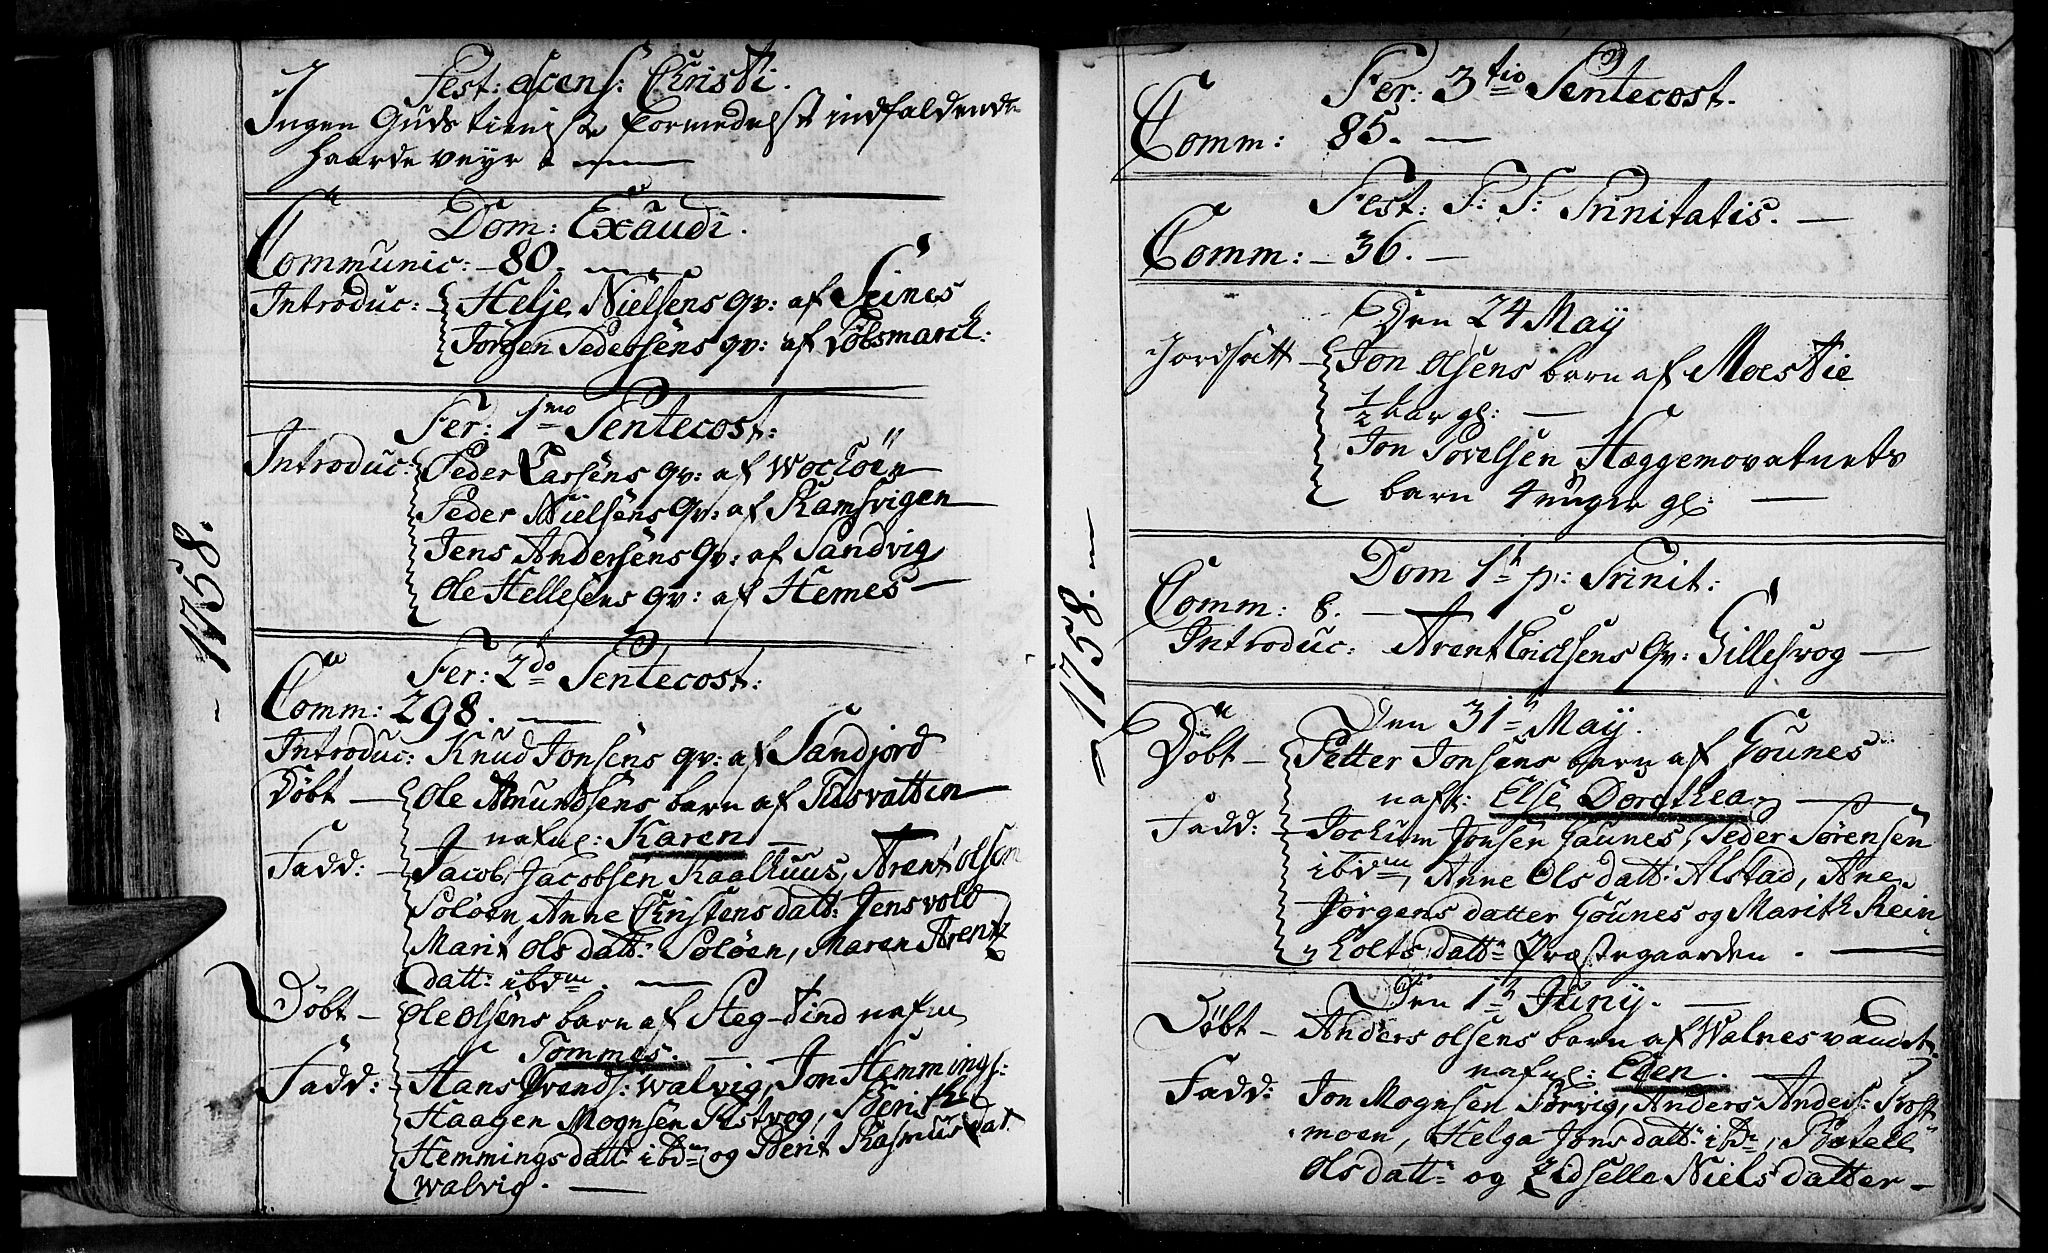 1758.
Fest: Ascens: Christi.
Ingen Guds tieniste formedelst indfaldende
haarde veyr
Dom: Exaudi.
Communic: 80.
Introduc: Helje Nielsens qv: af Seines
Jörgen Pedersens qv: af Löbsmarck:
Fer: 1mo Pentecost:
Introduc: Peder Larsens qv: af
Peder Nielsens qv: af Ramsvigen
Jens Andersens qv: af Sandvig
Ole Hellesens qv: af Hemes
Fer: 2do Pentecost:
Comm: 298.
Introduc: Knud Jonsens qv: af Sandjord
Döbt Ole Amundsens barn af
nafnl: Karen
Fadd: Jacob Jacobsen Kaalhuus, Arent Olsen
Solöen, Anne Christensdatt: Jensvold
Marit Olsdatt: Solöen, Maren Arentz
datt: ibdm.
Döbt Ole Olsens barn af Steg-tind nafnl
Tommes.
Fadd: Hans Hvends: Walvig, Jon Hemmings:
Haagen Mognsen Tistvog, Berith
Hemmingsdatt: ibdm og Berit Rasmusdat
Walvig.
1758.
Fer: 3tio Pentecost.
Comm: 85.
Fest: S: S: Trinitatis.
Comm: 36.
Den 24 May
Jordsatt Jon Olsens barn af Moestie
1/2 aar gl:
Jon Povelsen Hæggemovatnets
barn 4 uger gl:
Dom 1h p: Trinit:
Comm: 8.
Introduc: Arent Ericksens qv: Gillesvog
Den 31h May.
Döbt Petter Jonsens barn af Gounes
nafl: Else Dorothea
Fadd: Jochum Jonsen Gaunes, Peder Sörensen
ibdm, Anne Olsdatt: Alstad, Ane
Jörgensdatter Gounes og Marith Rein
holtsdatt: Præstegaarden.
Den 1h Juny.
Döbt Anders Olsens barn af Walnesvandet
nafnl: Elen.
Fadd: Jon Mognsen Torvig, Anders Anders:
moen, Helga Jonsdatt: ibdm,
Olsdatt: og Zidselle Nielsdatter